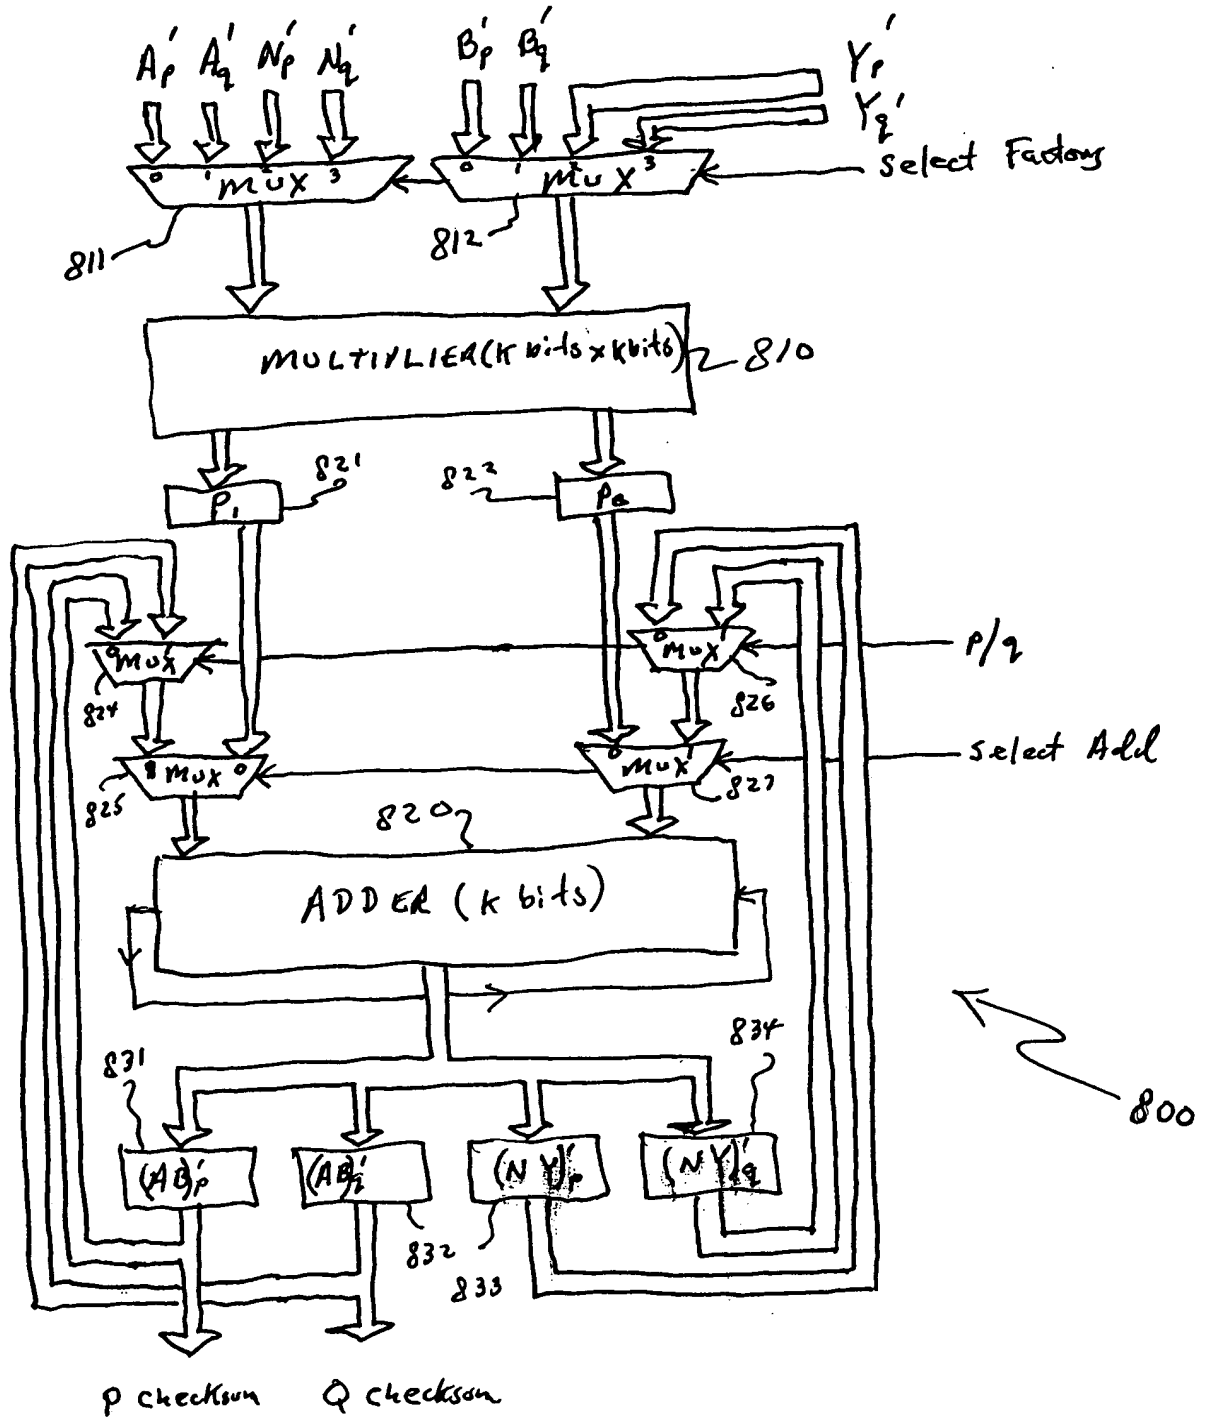 A'p A'q N'p N'q B'p B'q Y'p
Y'q
Select Factors
0 1 2 3 MUX
0 1 2 3 MUX
811
812
MULTIPLIER (K bits x K bits)
810
821
822
P1
P0
0 1 MUX
0 1 MUX
P/q
824
826
Select Add
MUX 0
0 1 MUX
825
827
820
ADDER (K bits)
831
834
800
(AB)'p
(AB)'q
(N Y)'p
(N Y)'q
832
833
P checksum
Q checksum